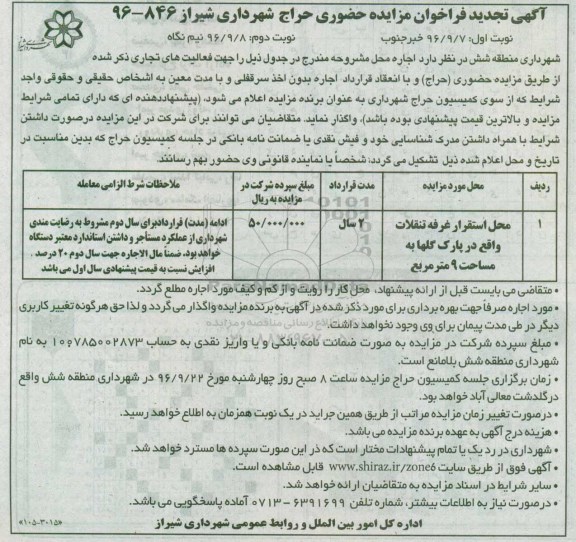 آگهی تجدید فراخوان مزایده حضوری حراج شهرداری شیراز ۸۴۶-۹۶
نوبت اول: ۹۶/۹/۷ خبرجنوب
نوبت دوم: ۹۶/۹/۸ نیم نگاه
شهرداری منطقه شش در نظر دارد اجاره محل مشروحه مندرج در جدول ذیل را جهت فعالیت های تجاری ذکر شده
از طریق مزایده حضوری (حراج) و با انعقاد قرارداد اجاره بدون اخذ سرقفلی و با مدت معین به اشخاص حقیقی و حقوقی واجد
شرایط که از سوی کمیسیون حراج شهرداری به عنوان برنده مزایده اعلام می شود، (پیشنهاددهنده ای که دارای تمامی شرایط
مزایده و بالاترین قیمت پیشنهادی بوده باشد)، واگذار نماید. متقاضیان می توانند برای شرکت در این مزایده درصورت داشتن
شرایط با همراه داشتن مدرک شناسایی خود و فیش نقدی یا ضمانت نامه بانکی در جلسه کمیسیون حراج که بدین مناسبت در
تاریخ و محل اعلام شده ذیل تشکیل می گردد؛ شخصاً یا نماینده قانونی وی حضور بهم رسانند.
ردیف
محل مورد مزایده
مدت قرارداد
مبلغ سپرده شرکت در مزایده به ریال
ملاحظات شرط الزامی معامله
۱
محل استقرار غرفه تنقلات
واقع در پارک گلها به
مساحت ۹ متر مربع
۲ سال
۵۰/۰۰۰/۰۰۰
ادامه (مدت) قرارداد برای سال دوم مشروط به رضایت مندی
شهرداری از عملکرد مستأجر و داشتن استاندارد معتبر دستگاه
خواهد بود. ضمناً مال الاجاره جهت سال دوم ۲۰ درصد
افزایش نسبت به قیمت پیشنهادی سال اول می باشد
• متقاضی می بایست قبل از ارائه پیشنهاد، محل کار را رویت و از کم و کیف مورد اجاره مطلع گردد.
• مورد اجاره صرفاً جهت بهره برداری برای مورد ذکر شده در آگهی به برنده مزایده واگذار می گردد و لذا حق هرگونه تغییر کاربری
دیگر در طی مدت پیمان برای وی وجود نخواهد داشت.
• مبلغ سپرده شرکت در مزایده به صورت ضمانت نامه بانکی و یا واریز نقدی به حساب ۱۰۰۷۸۵۰۰۲۸۷۳ به نام
شهرداری منطقه شش بلامانع است.
• زمان برگزاری جلسه کمیسیون حراج مزایده ساعت ۸ صبح روز چهارشنبه مورخ ۹۶/۹/۲۲ در شهرداری منطقه شش واقع
در گلدشت معالی آباد خواهد بود.
• درصورت تغییر زمان مزایده مراتب از طریق همین جراید در یک نوبت همزمان به اطلاع خواهد رسید.
• هزینه درج آگهی به عهده برنده مزایده می باشد.
• شهرداری در رد یک یا تمام پیشنهادات مختار است که در این صورت سپرده ها مسترد خواهد شد.
• آگهی فوق از طریق سایت www.shiraz.ir/zone6 قابل مشاهده است.
• سایر شرایط در اسناد مزایده به متقاضیان ارائه خواهد شد.
• درصورت نیاز به اطلاعات بیشتر، شماره تلفن ۶۳۹۱۶۹۹-۰۷۱۳ آماده پاسخگویی می باشد.
اداره کل امور بین الملل و روابط عمومی شهرداری شیراز
«۱۰۵-۳۰۱۵»